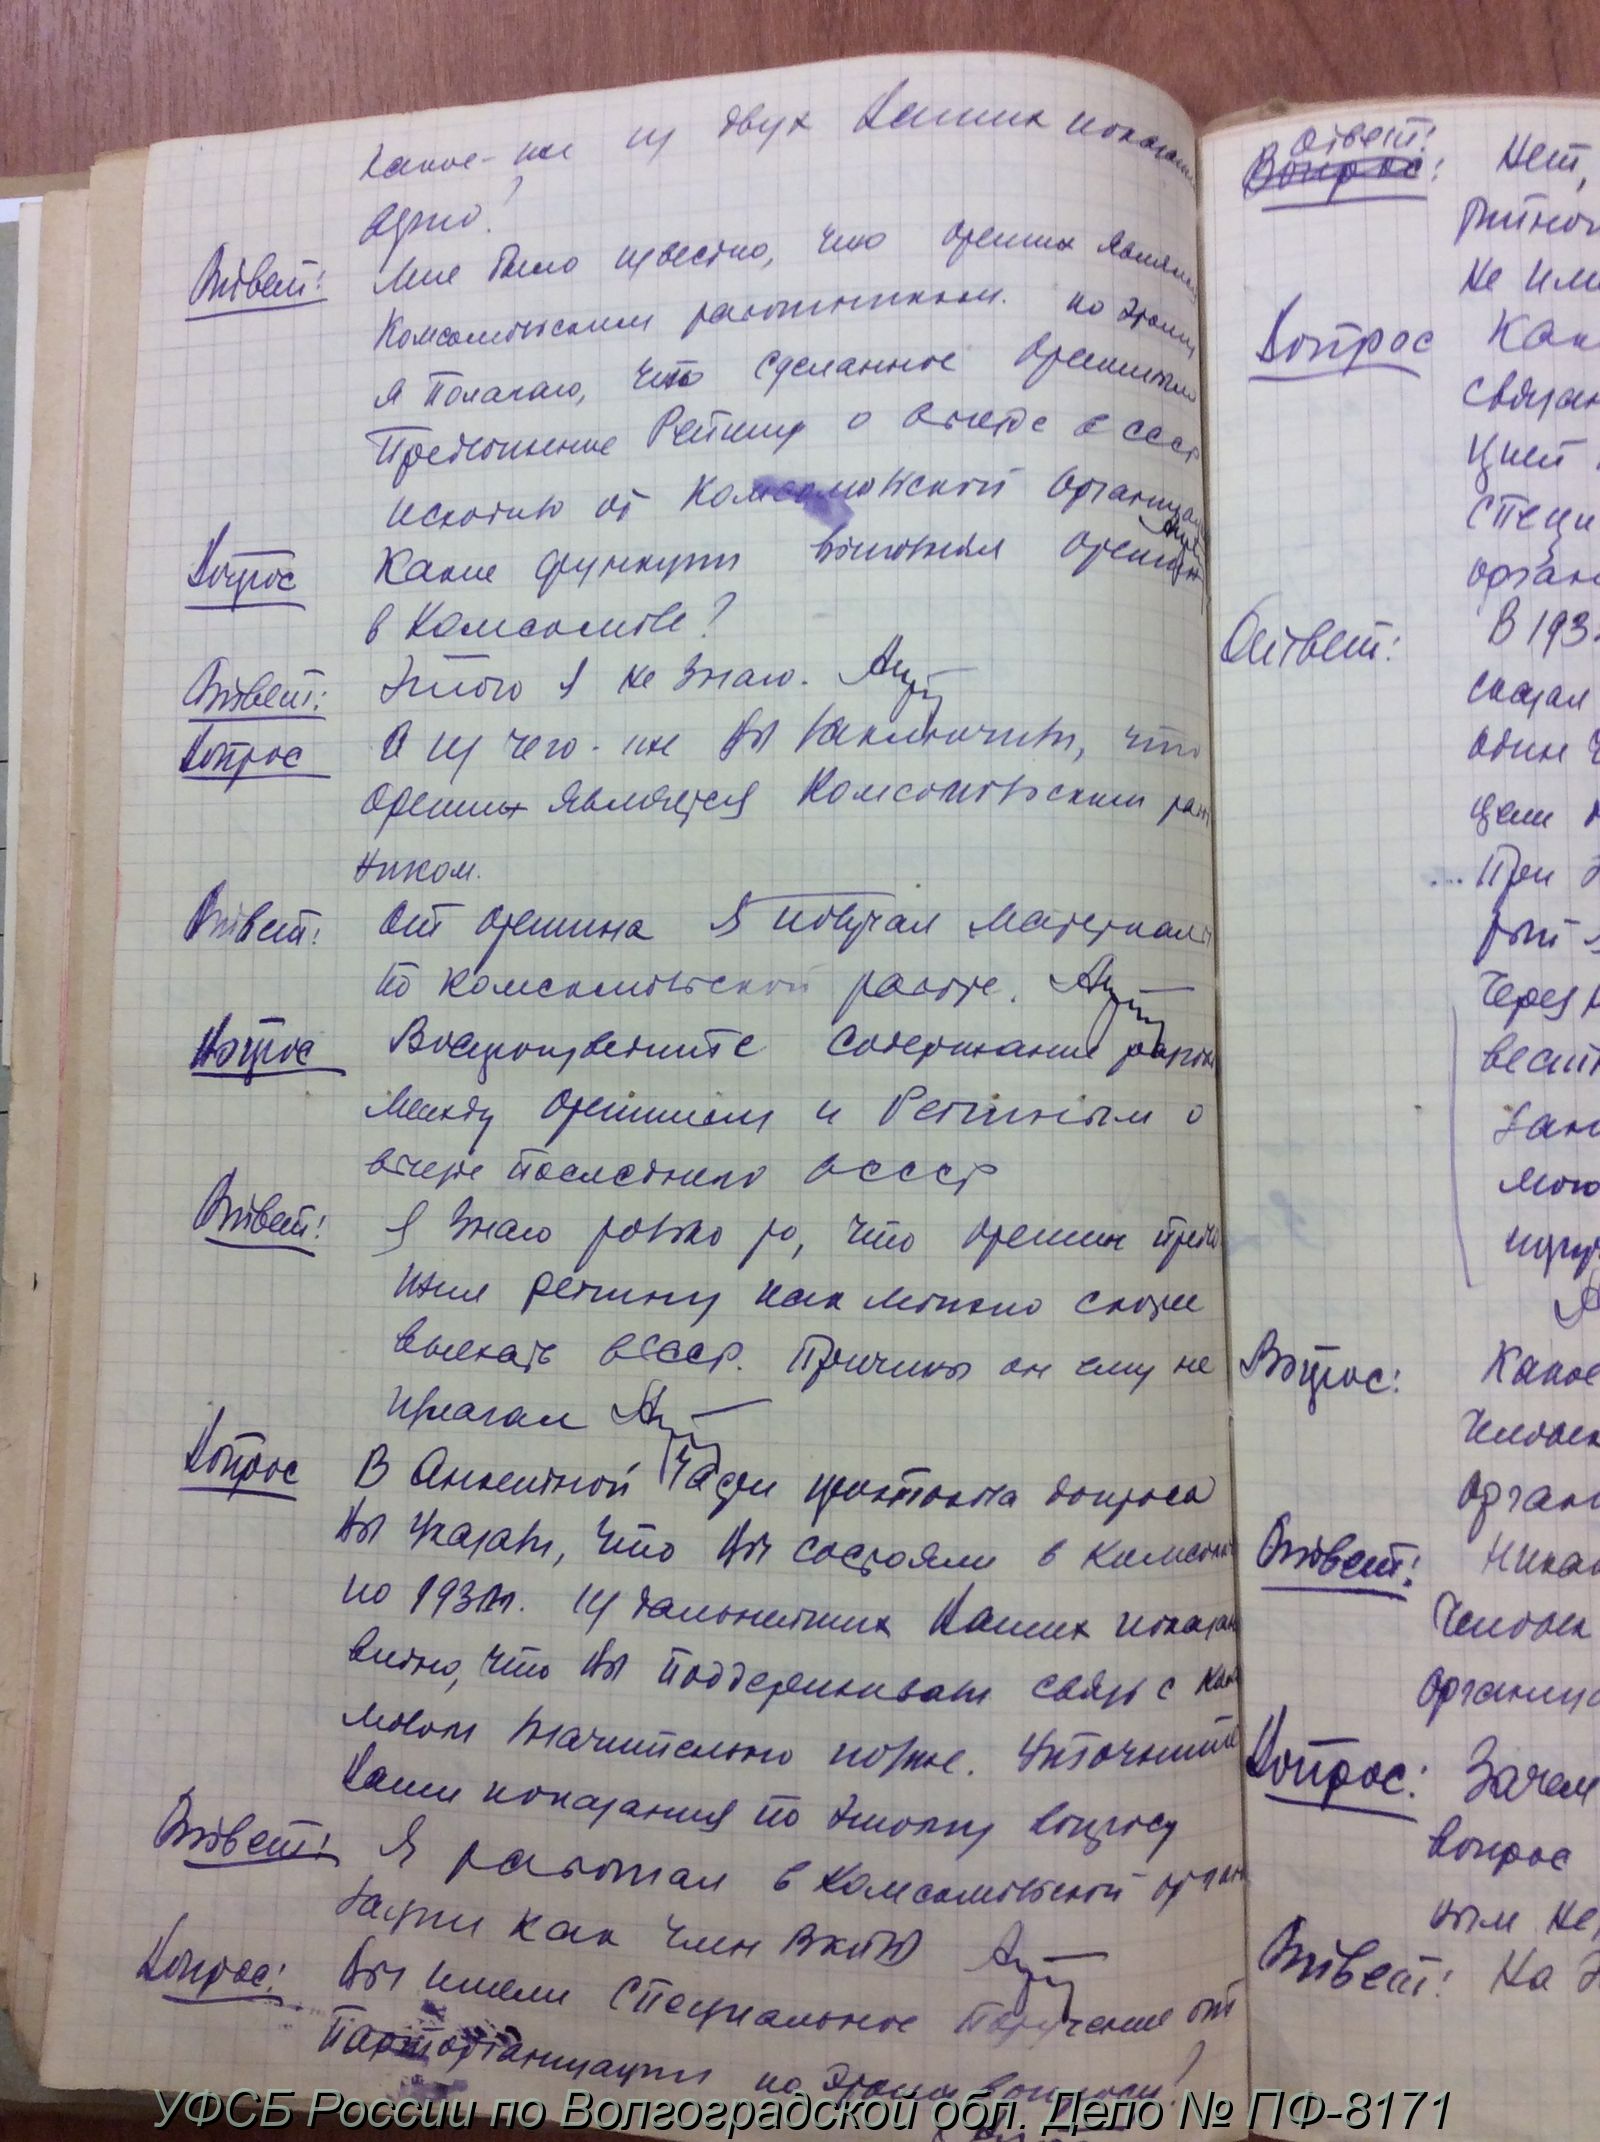 какое-же из двух Ваших показаний
одно?
Ответ: Мне было известно, что Орешин являлся
Комсомольским работником. по этому
я полагаю, что сделанное Орешиным
предложение Рейтину о выезде в СССР
исходило от Комсомольской организации
Вопрос Какие функции выполнял Орешин
в Комсомоле?
Ответ: Этого я не знаю.
Вопрос А из чего-же Вы заключили, что
Орешин является Комсомольским работ
ником.
Ответ: От Орешина я получал материалы
по комсомольской работе.
Вопрос Воспроизведите содержание разговора
между Орешиным и Рейтиным о
выезде последнего в СССР
Ответ: Я знаю только то, что Орешин предло
жил Рейтину как можно скорее
выехать в СССР. Причины он ему не
излагал
Вопрос В Анкетной части протокола допроса
Вы указали, что Вы состояли в комсомоле
по 193 г. Из дальнейших Ваших показаний
видно, что Вы поддерживали связь с Комсо
молом значительно позже. Уточните
Ваши показания по этому вопросу
Ответ: Я работал в комсомольской органи
зации как член ВКП(б)
Вопрос: Вы имели специальное поручение от
парторганизации по этому вопросу?
Ответ:
Вопрос: Нет,
не им
Вопрос Как
связан
цией
специ
орган
Ответ: В 193
сказал
один ч
цели
При э
рый
через
вест
зан
мою
Вопрос: Какое
человек
орган
Ответ: Никак
человек
организа
Вопрос: Зачем
вопрос
ным не
Ответ: На э
УФСБ России по Волгоградской обл. Дело № ПФ-8171